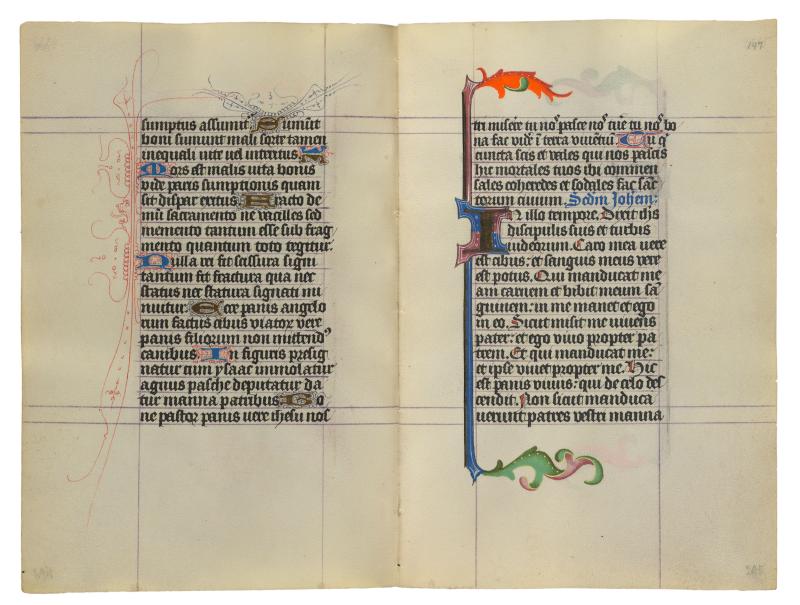 sumptus assumit Sumūt
boni sumunt mali sorte tamen
inequali uite uel interitus
Mors est malis uita bonis
vide paris sumptionis quam
sit dispar exitus Fracto de
mū sacramento ne vacilles sed
memento tantum esse sub frag
mento quantum toto tegitur.
Nulla rei fit scissura signi
tantum fit fractura qua nec
status nec statura signati mi
nuitur. Ecce panis angelo
rum factus cibus viator vere
panis filiorum non mittendꝰ
canibus In figuris presig
natur cum ysaac immolatur
agnus pasche deputatur da
tur manna patribus Bo
ne pastor panis uere ihesu nos
147
tri misere tu noˢ pasce noˢ tue tu noˢ bo
na fac vide ī terra viuētiū Tu q
cuncta scis et vales qui nos pascis
hic mortales tuos ibi commen
sales coheredes et sodales fac sāc
torum ciuium. Scdm Johem:
In illo tempore. Dixit ihs
discipulis suis et turbis
iudeorum. Caro mea uere
est cibus: et sanguis meus vere
est potus. Qui manducat me
am carnem et bibit meum sā
guinem: in me manet et ego
in eo. Sicut misit me viuens
pater: et ego viuo propter pa
trem. Et qui manducat me:
et ipse viuet propter me. Hic
est panis viuus: qui de celo des
cendit. Non sicut manduca
uerunt patres vestri manna